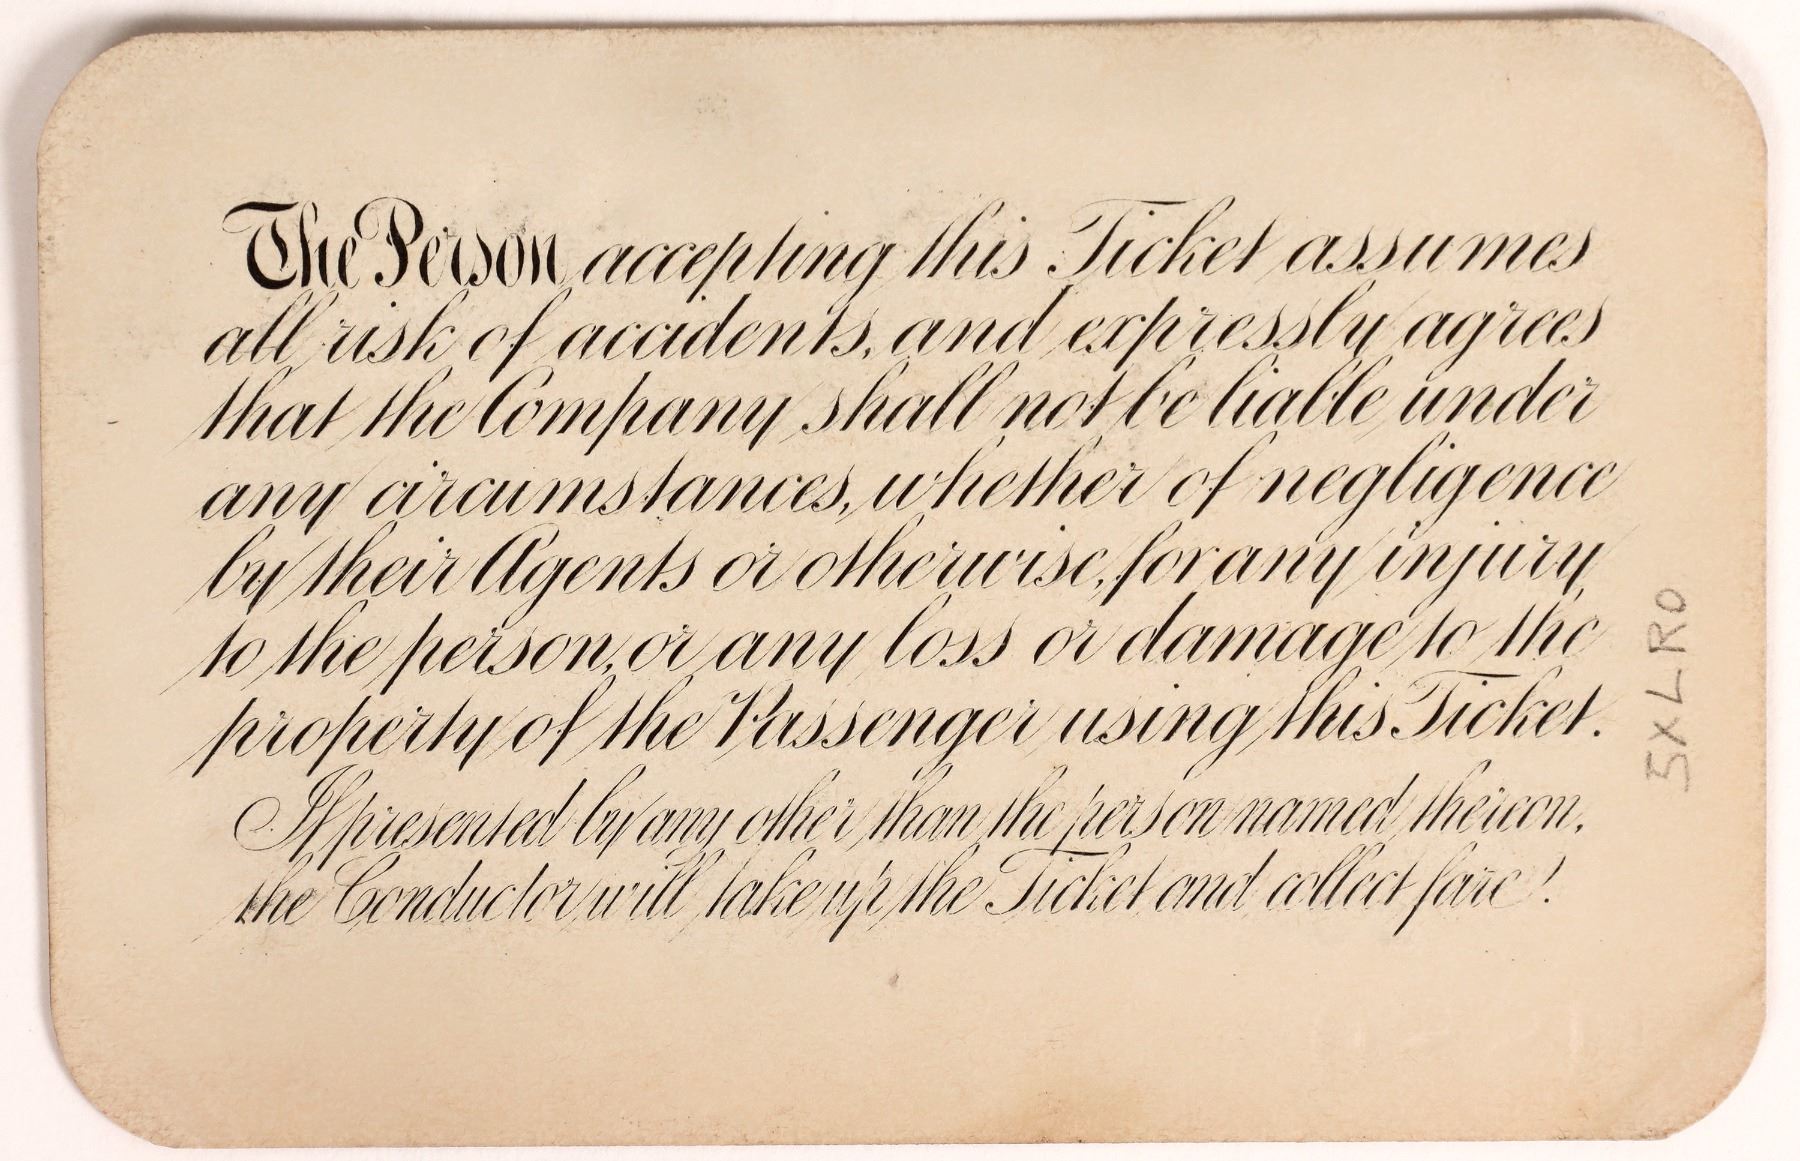 The Person accepting this Ticket assumes
all risk of accidents, and expressly agrees
that the Company shall not be liable under
any circumstances, whether of negligence
by their Agents or otherwise, for any injury
to the person, or any loss or damage to the
property of the Passenger using this Ticket.
If presented by any other than the person named thereon,
the Conductor will take up the Ticket and collect fare.
5XLRO